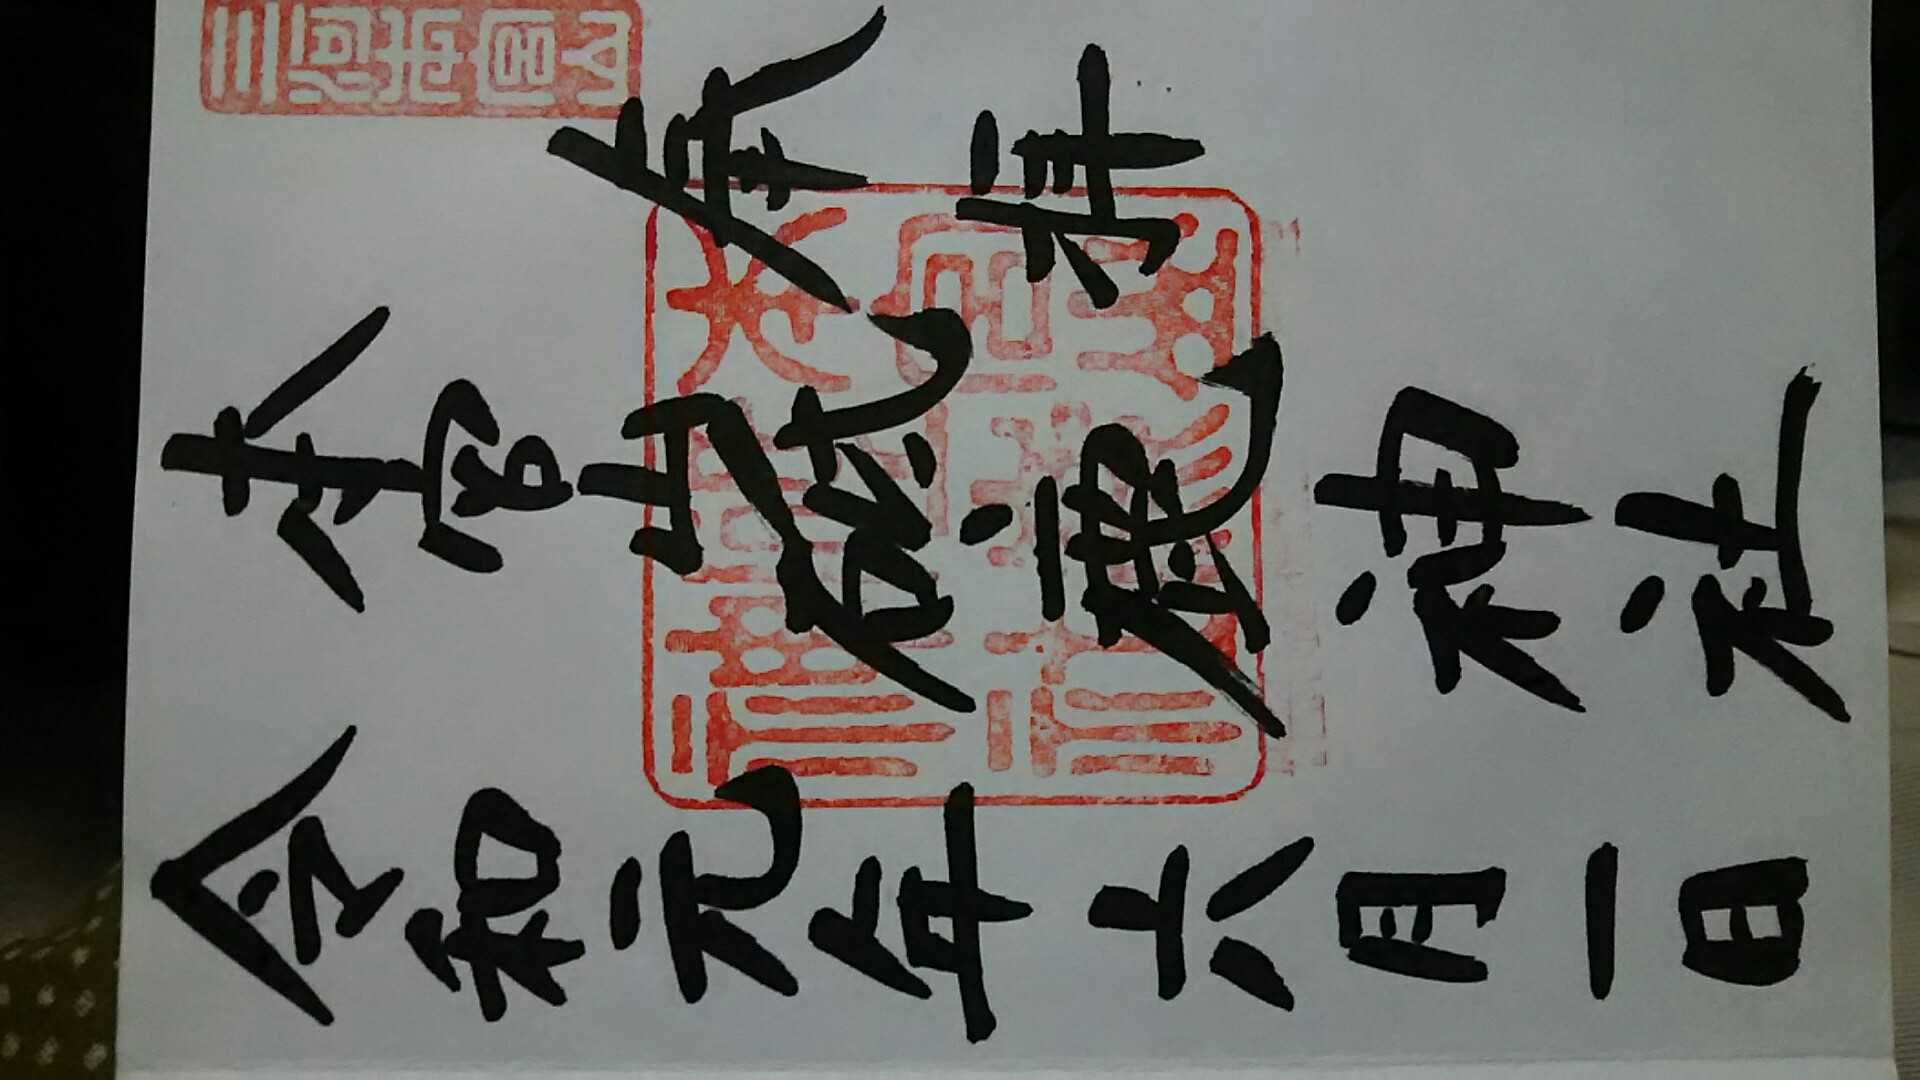 奉拝
三河本宮山
本宮山砥鹿神社
令和元年六月一日